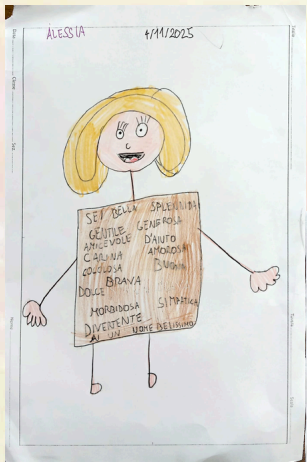 ALESSIA 4/11/2025
SEI BELLA SPLENDIDA
GENTILE GENEROSA
AMICHEVOLE D'AIUTO
CARINA AMOROSA
COCCOLOSA BUONA
BRAVA
DOLCE
MORBIDOSA SIMPATICA
DIVERTENTE
AI UN NOME BELISSIMO